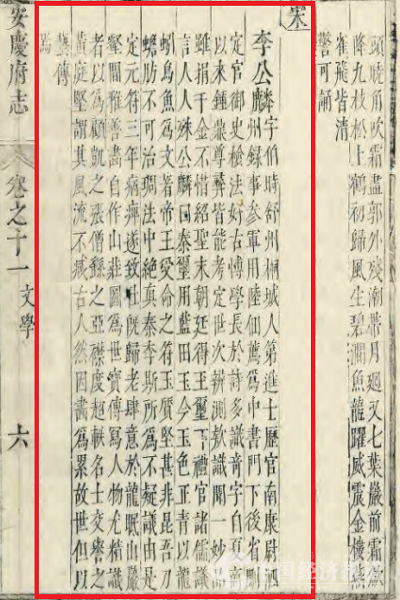 頭曉角吹霜盡郭外殘潮帶月迴又七葉巖前霜熊
降九枝松上鶴初歸風生碧澗魚龍躍威震金樓燕
雀飛皆清
警可誦
宋
李公麟字伯時舒州桐城人第進士歷官南康尉泗
州錄事參軍用陸佃薦為中書門下後省刪
定官御史檢法好古博學長於詩多識奇字自夏商
以來鍾鼎尊彝皆能考定世次辨測欵識聞一妙品
雖捐千金不惜紹聖末朝廷得玉璽下禮官諸儒議
言人人殊公麟曰秦璽用藍田玉今玉色正青以龍
蚓鳥魚為文著帝王受命之符玉質堅甚非昆吾刀
蟾肪不可治琱法中絶真秦李斯所為不疑議由是
定元符三年病痺遂致仕既歸老肆意於龍眠山巖
壑間雅善畫自作山莊圖為世寶傳寫人物尤精識
者以為顧凱之張僧繇之亞襟度超軼名士交譽之
黃庭堅謂其風流不减古人然因畫為累故世但以
藝傳
焉
安慶府志 卷之十一 文學 六